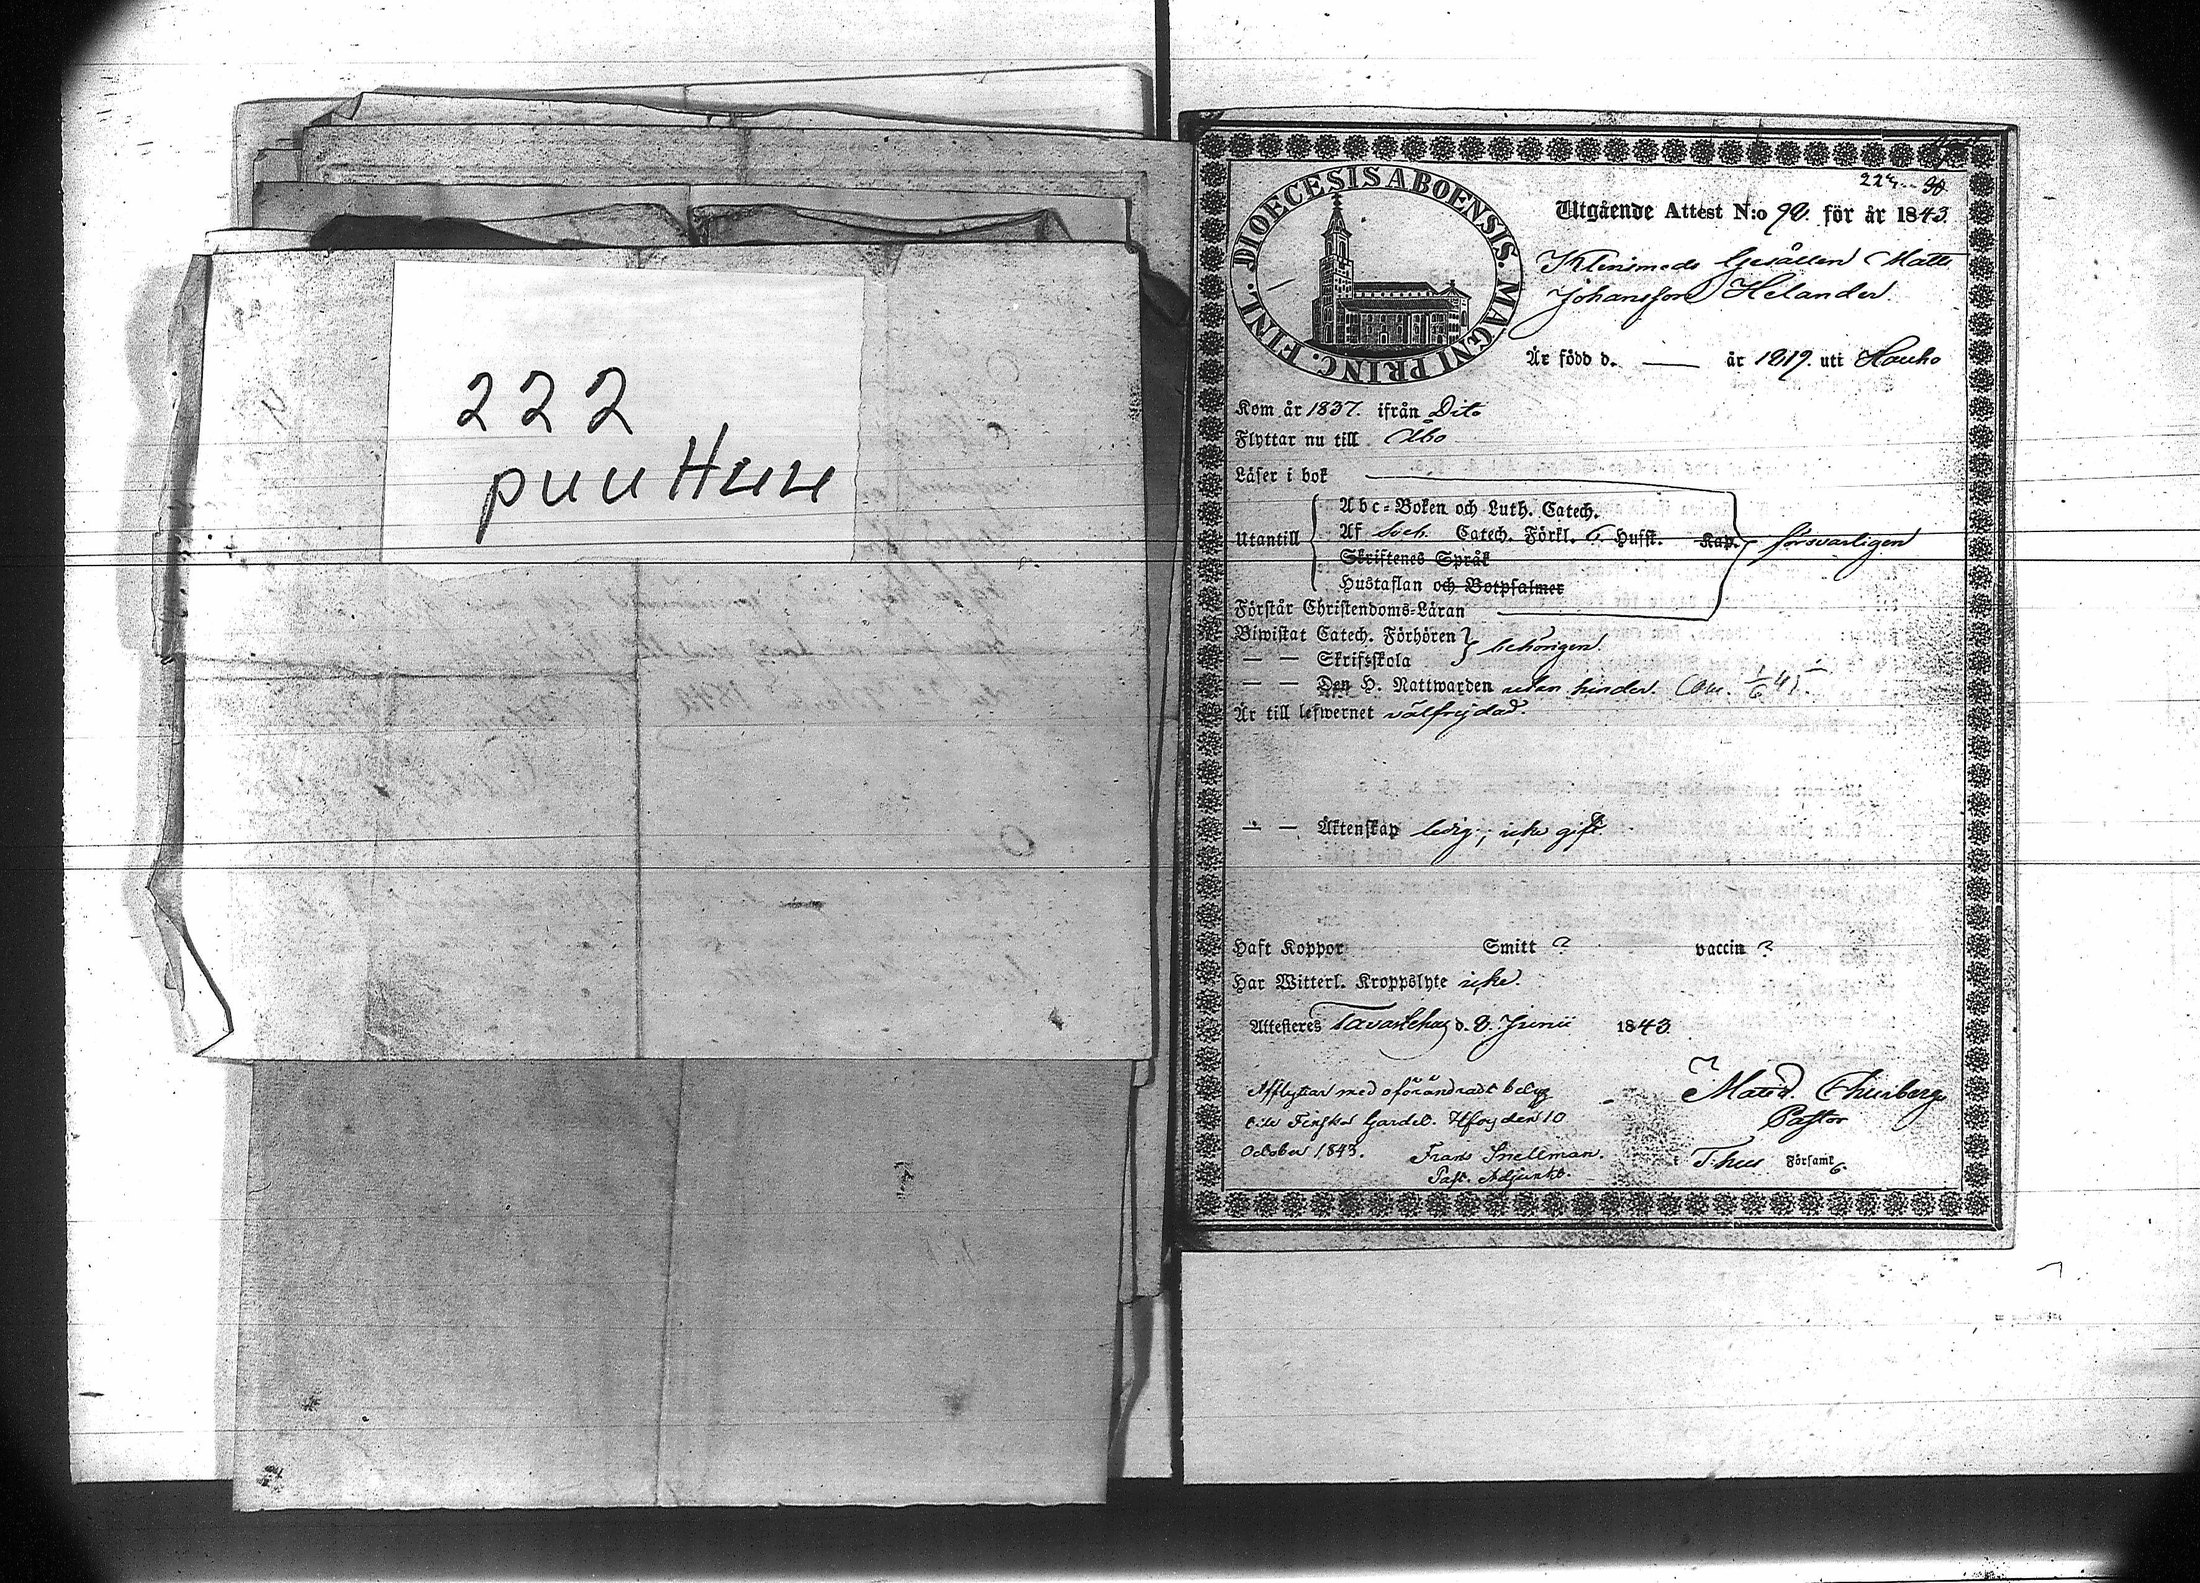 222
puuttuu
DIOECESIS ABOENSIS. MAGNI PRINC. FINL.
Utgående Attest N:o 90. för år 1843.
Klensmeds Gesällen Matts
Johansson Helander.
Är född d. — år 1819. uti Hauho
Kom år 1837. ifrån Dito
Flyttar nu till Åbo
Läser i bok
Utantill
Abc-Boken och Luth. Catech.
Af Catech. Förkl. 6 Hufst. Kap.
försvarligen
Skriftenes Språk
Hustaflan och Botpsalmer
Förstår Christendoms-Läran
Biwistat Catech. Förhören
— — Skriftskola
behörigen.
— — Den H. Nattwarden utan hinder.
Är till lefwernet välfrejdad.
— — Äktenskap ledig; icke gift.
Haft Koppor Smitt ? vaccin ?
Har Witterl. Kroppslyte icke.
Attesteres Tavastehus d. 8. Junii 1843
Afflyttar med oförändradt betyg
till Finska Garde den 10
October 1843. Frans Snellman.
Past. Adjunkt.
Pastor
Församl.